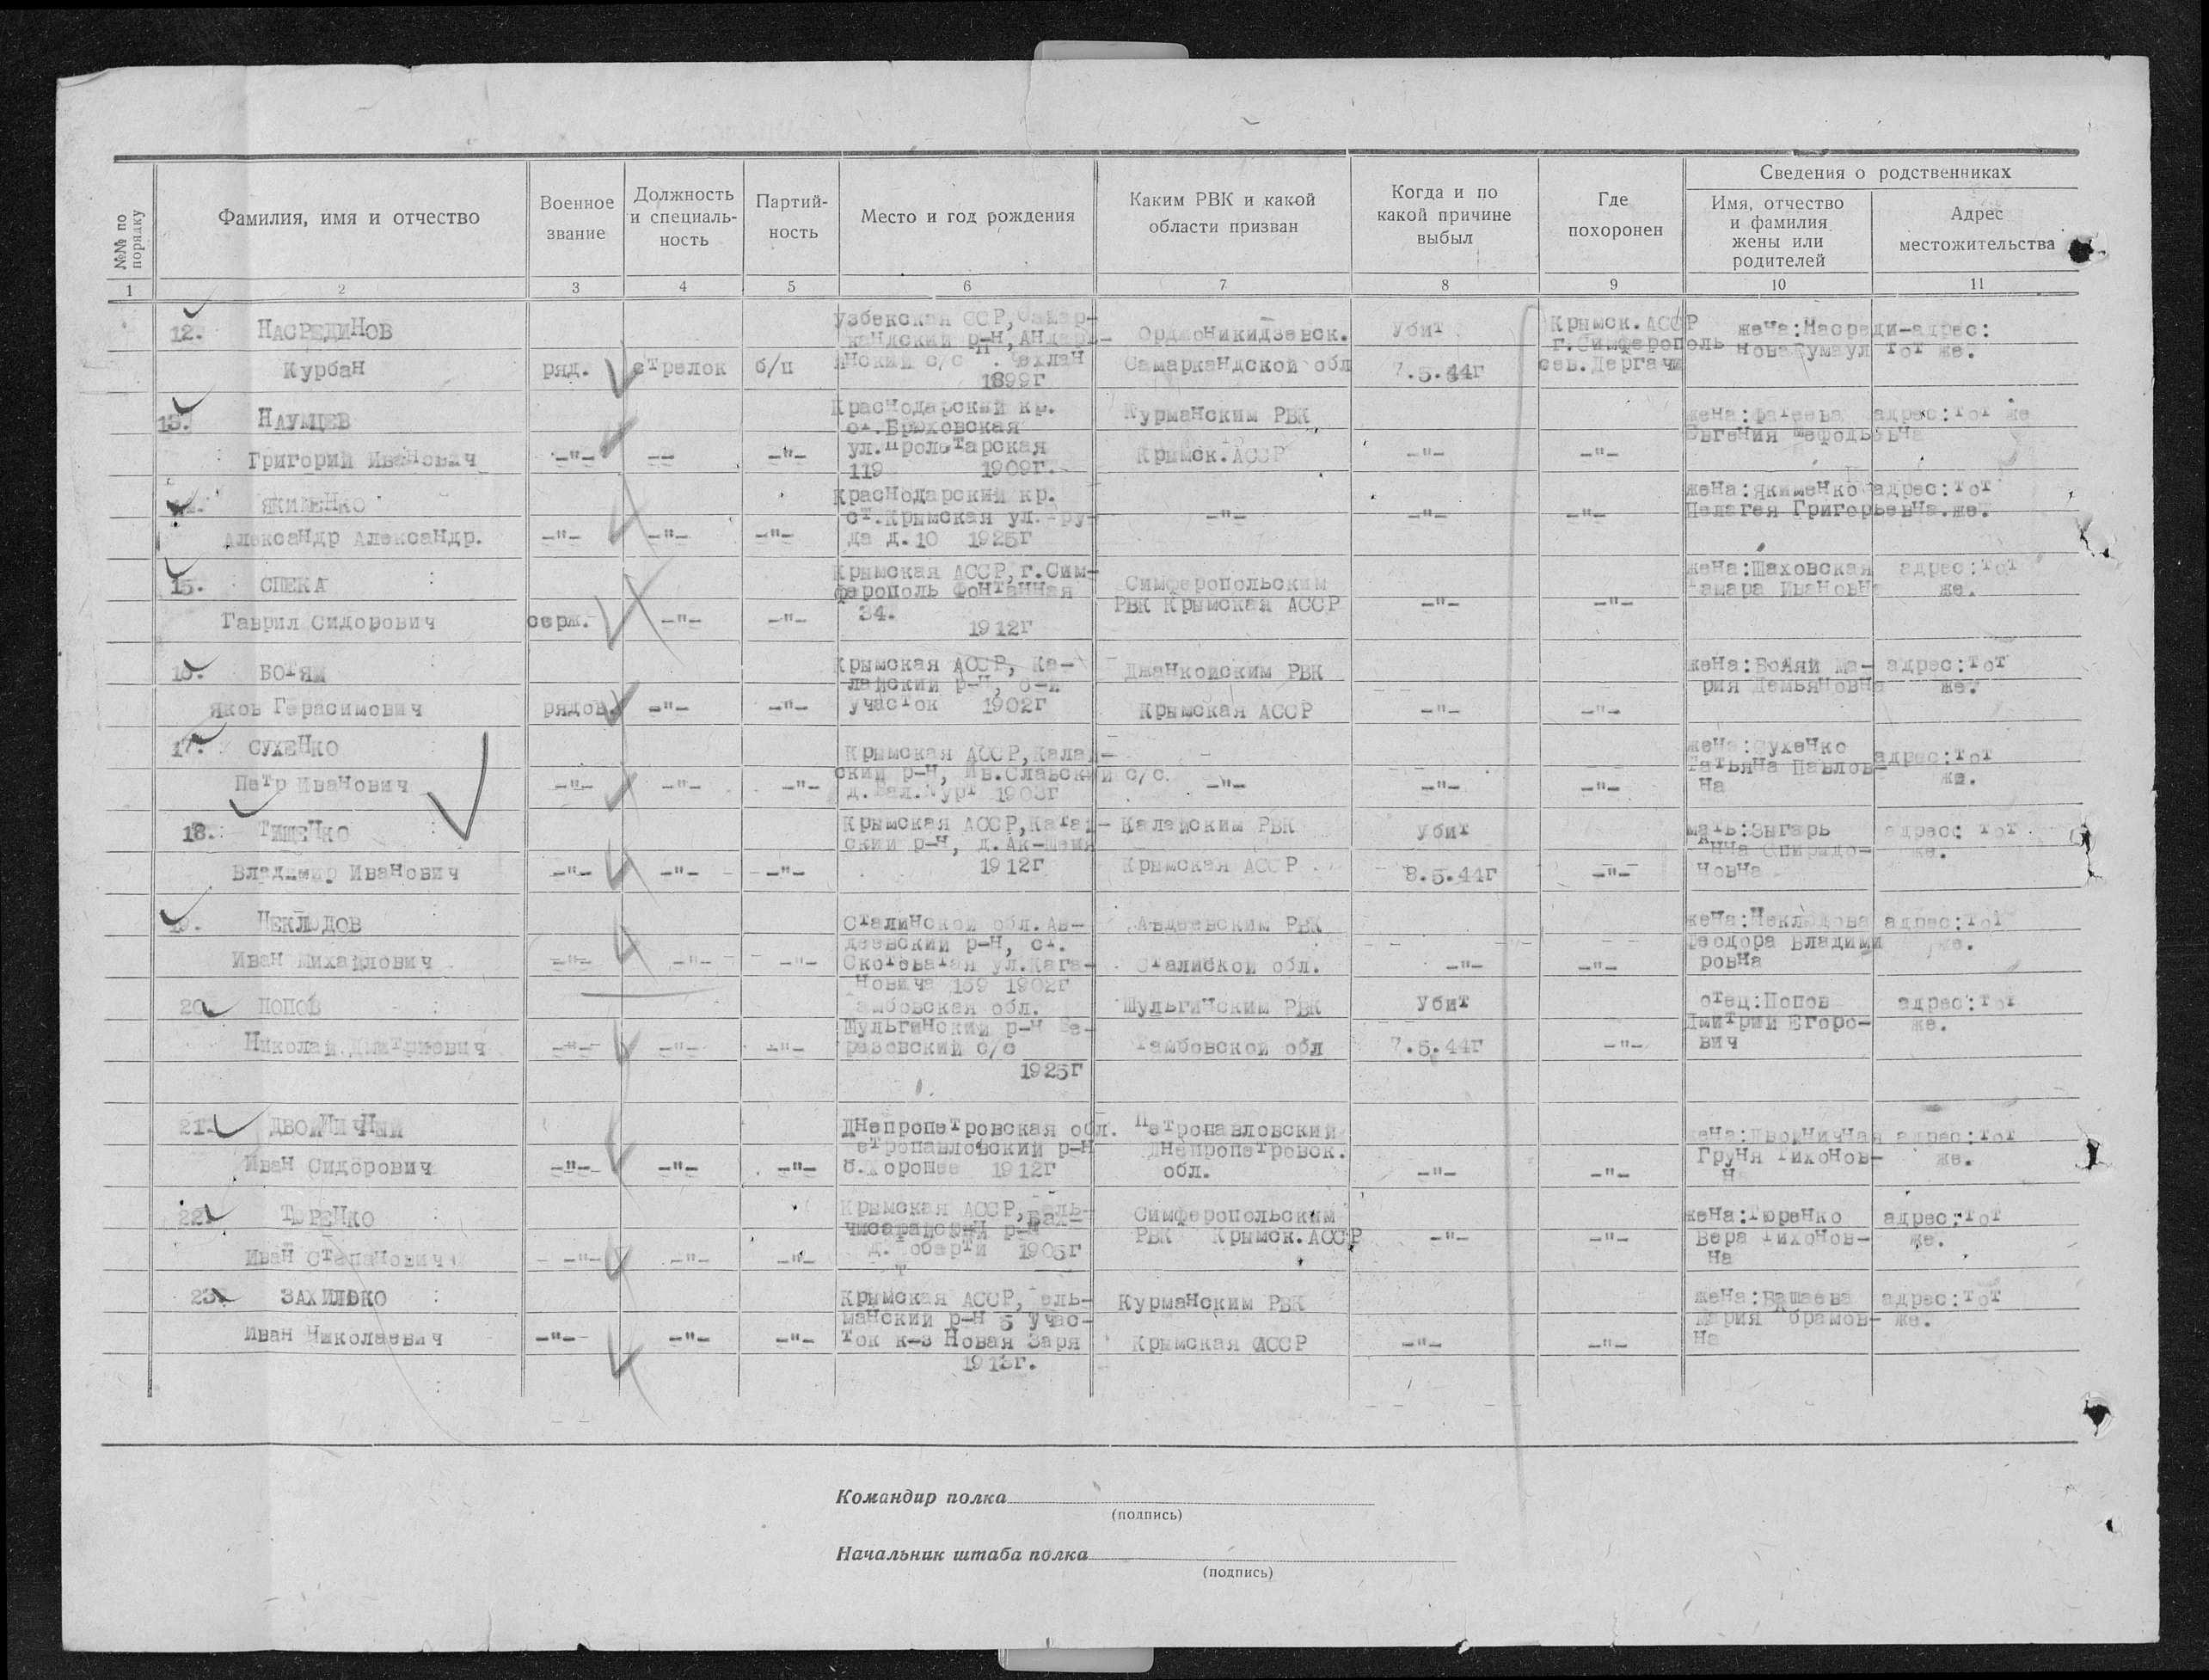 №№ по порядку
Фамилия, имя и отчество
Военное звание
Должность и специаль-ность
Партий-ность
Место и год рождения
Каким РВК и какой области призван
Когда и по какой причине выбыл
Где похоронен
Сведения о родственниках
Имя, отчество и фамилия жены или родителей
Адрес местожительства
1 2 3 4 5 6 7 8 9 10 11
12. НАСРЕДИНОВ
Курбан ряд. стрелок б/п
Узбекская ССР, Самар-
кандский р-н,
1899г
Орджоникидзевск.
Самаркандской обл
Убит
7.5.44г
Крымск.АССР
г.Симферополь
сев.Дергачи
жена:Насреди- адрес:
нова тот же.
13. НАУМЦЕВ
Григорий Иванович -"- -- -"-
Краснодарский кр.
ст.Брюховская
ул.Пролетарская
119 1909г.
Курманским РВК
Крымск.АССР
-"- -"-
жена:Фатеева адрес:тот же
Евгения
14. ЯКИМЕНКО
Александр Александр. -"- -"- -"-
Краснодарский кр.
ст.Крымская ул.Тру-
да д.10 1925г
-"- -"- -"-
жена:Якименко адрес:тот
Пелагея Григорьевна.же.
15. СПЕКА
Гаврил Сидорович серж. -"- -"-
Крымская АССР,г.Сим-
ферополь Фонтанная
34.
1912г
Симферопольским
РВК Крымская АССР
-"- -"-
жена:Шаховская адрес:тот
Тамара Ивановна же.
16.
Яков Герасимович рядов. -"- -"-
Крымская АССР, Ка-
лайский р-н, 6-й
участок 1902г
Джанкойским РВК
Крымская АССР
-"- -"-
жена: Ма- адрес:тот
рия Демьяновна же.
17. СУХЕНКО
Петр Иванович -"- -"- -"-
Крымская АССР,Калай-
ский р-н, с/с
1903г
-"- -"- -"-
жена:Сухенко адрес:тот
Татьяна Павлов- же.
на
18. ТИЩЕНКО
Владимир Иванович -"- -"- -"-
Крымская АССР,
ский р-н, д.Ак-Шейх
1912г
Калайским РВК
Крымская АССР
Убит
8.5.44г
-"-
мать:Зыгарь адрес: тот
Анна Спиридо- же.
новна
19. НЕКЛЮДОВ
Иван Михайлович -"- -"- -"-
Сталинской обл.Ав-
деевский р-н, ст.
Скотоватая ул.Кага-
новича 159 1902г
Авдеевским РВК
Сталиской обл.
-"- -"-
жена:Неклюдова адрес:тот
Теодора Владими же.
ровна
20. ПОПОВ
Николай Дмитриевич -"- -"- -"-
Тамбовская обл.
Шульгинский р-н Бе-
резовский с/с
1925г
Шульгинским РВК
Тамбовской обл
Убит
7.5.44г
-"-
отец:Попов адрес:тот
Дмитрий Егоро- же.
вич
21. ДВОЙНИЧНЫЙ
Иван Сидорович -"- -"- -"-
Днепропетровская обл.
Петропавловский р-н
с.Хорошее 1912г
Петропавловский
Днепропетровск.
обл.
-"- -"-
жена:Двойничная адрес:тот
Груня Тихонов- же.
на
22. ТЮРЕНКО
Иван Степанович -"- -"- -"-
Крымская АССР,
р-н
1905г
Симферопольским
РВК Крымск.АССР
-"- -"-
жена:Тюренко адрес:тот
Вера Тихонов- же.
на
23. ЗАХИЛЬКО
Иван Николаевич -"- -"- -"-
Крымская АССР, Тель-
манский р-н 5 учас-
ток к-з Новая Заря
1913г.
Курманским РВК
Крымская АССР
-"- -"-
жена:Вашаева адрес:тот
Мария Абрамов- же.
на
Командир полка
(подпись)
Начальник штаба полка
(подпись)